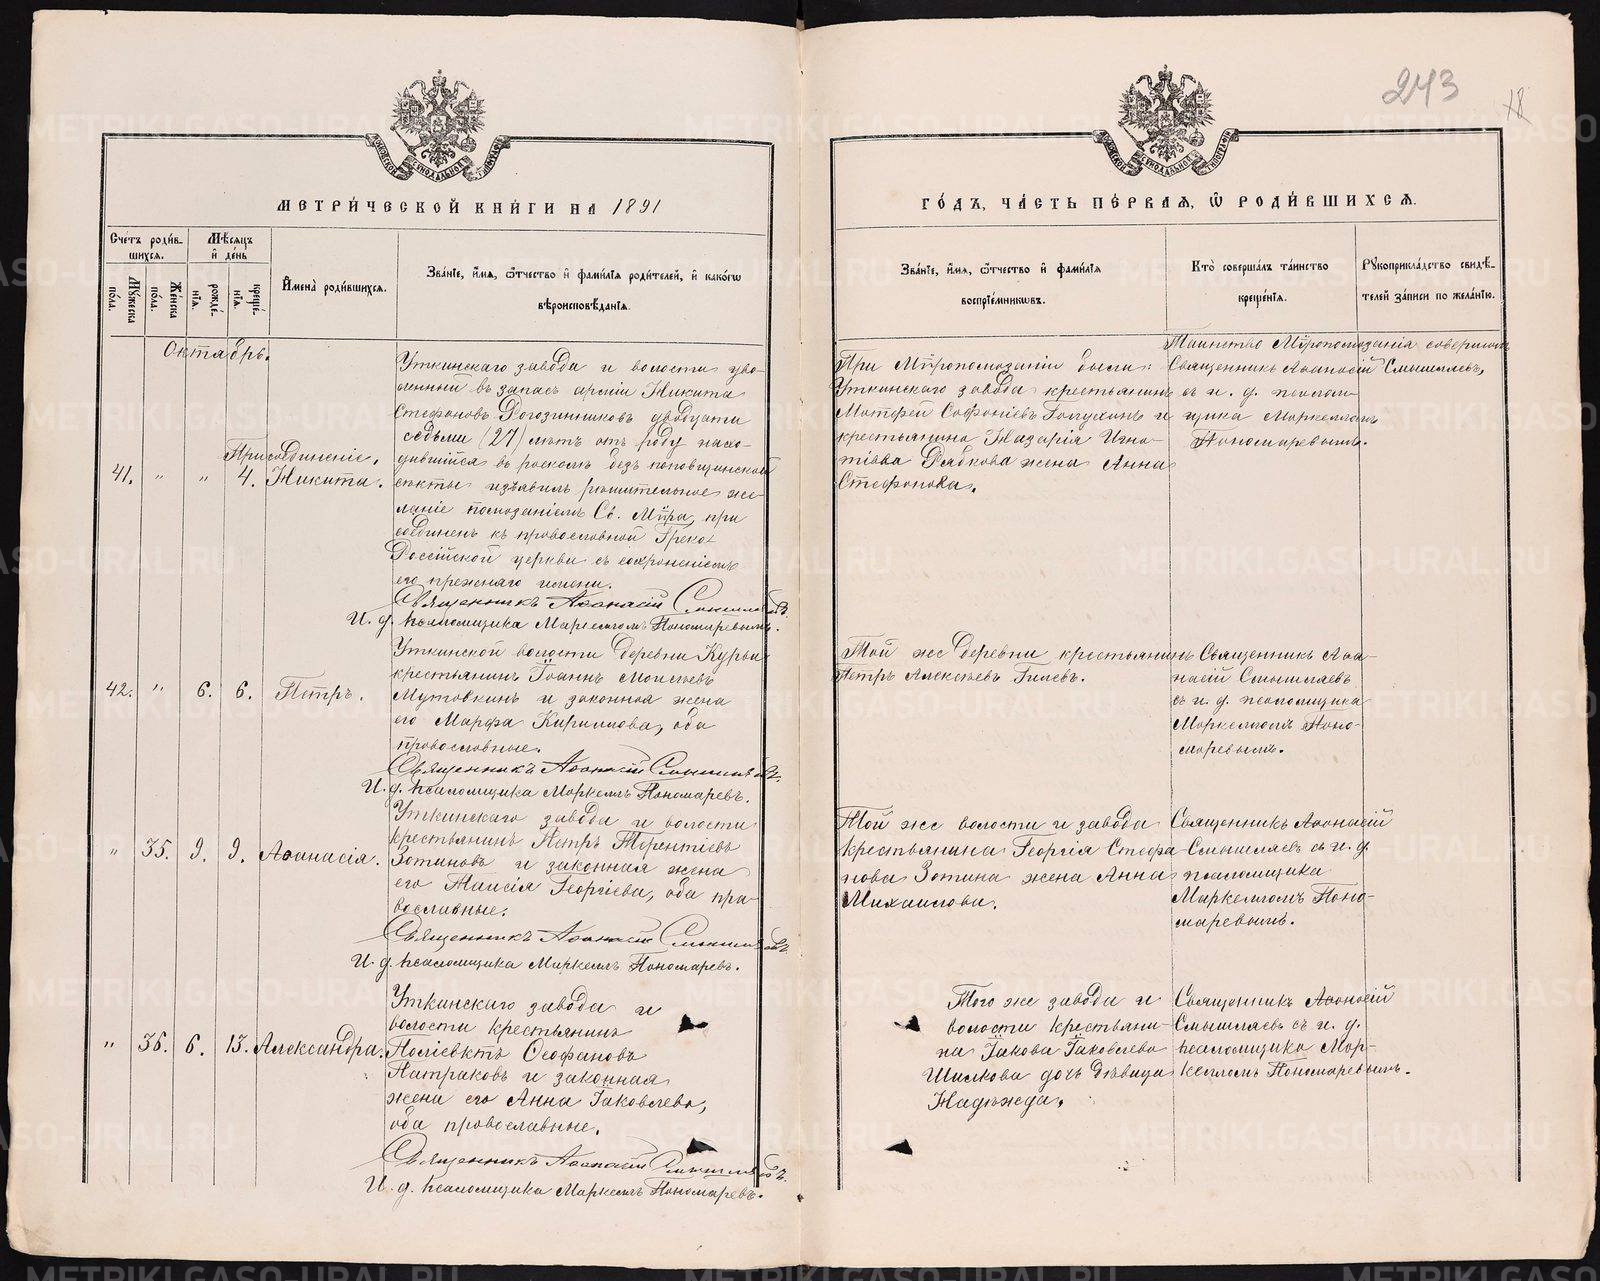 243
18
МОСКОВСКОЙ СѴНОДАЛЬНОЙ ТИПОГРАФІИ
МОСКОВСКОЙ СѴНОДАЛЬНОЙ ТИПОГРАФІИ
МЕТРИ́ЧЕСКОЙ КНИ́ГИ НА 1891
ГО́ДЪ, ЧА́СТЬ ПЕ́РВАЯ, Ѡ РОДИ́ВШИХСЯ.
Сче́тъ роди́в-
шихся.
Му́жеска
по́ла.
Же́нска
по́ла.
Мѣ́сяцъ
и҆ де́нь
рожде́-
нїя.
креще́-
нїя.
И҆мена̀ роди́вшихся.
Зва́нїе, и҆́мя, ѻ҆́тчество и҆ фами́лїя роди́телей, и҆ како́гѡ
вѣроисповѣ́данїя.
Зва́нїе, и҆́мя, ѻ҆́тчество и҆ фами́лїя
воспрїе́мникѡвъ.
Кто̀ соверша́лъ та́инство
креще́нїя.
Рꙋкоприкла́дство свидѣ́-
телей за́писи по жела́нїю.
Октябрь.
41. " " 4.
Присоединеніе.
Никита.
Уткинскаго завода и волости уво-
ленный въ запасъ арміи Никита
Стефановъ Рогозинниковъ двадцати
седьми (27) лѣтъ отъ роду нахо-
дившійся въ расколѣ безъ поповщинской
секты изъявилъ рѣшительное же-
ланіе помазаніемъ Св. Мѵра, при
соединенъ къ православной Греко-
Россійской церкви съ сохраненіемъ
его прежняго имени.
Священникъ Аѳанасій Смышляевъ.
И. д. псаломщика Маркеллъ Пономаревъ.
При Мѵропомазаніи были:
Уткинскаго завода крестьянинъ
Матфей Софоніевъ Голухинъ и
крестьянина Назарія Игна-
тіева Рябкова жена Анна
Стефанова.
Таинство Мѵропомазанія совершилъ
Священникъ Аѳанасій Смышляевъ,
съ и. д. псалом-
щика Маркелломъ
Пономаревымъ.
42. " 6. 6. Петръ.
Уткинской волости деревни Курьи
крестьянинъ Іоаннъ Моисеевъ
Мутовкинъ и законная жена
его Марфа Кириллова, оба
православные.
Священникъ Аѳанасій Смышляевъ.
И. д. псаломщика Маркеллъ Пономаревъ.
Той же деревни крестьянинъ
Петръ Алексѣевъ Гилевъ.
Священникъ Аѳа-
насій Смышляевъ
съ и. д. псаломщика
Маркелломъ Поно-
маревымъ.
" 35. 9. 9. Аѳанасія.
Уткинскаго завода и волости
крестьянинъ Петръ Терентіевъ
Зотиновъ и законная жена
его Таисія Георгіева, оба пра-
вославные.
Священникъ Аѳанасій Смышляевъ.
И. д. псаломщика Маркеллъ Пономаревъ.
Той же волости и завода
крестьянина Георгія Стефа-
нова Зотина жена Анна
Михаилова.
Священникъ Аѳанасій
Смышляевъ съ и. д.
псаломщика
Маркелломъ Поно-
маревымъ.
" 36. 6. 13. Александра.
Уткинскаго завода и
волости крестьянинъ
Поліевктъ Ѳеофановъ
Патраковъ и законная
жена его Анна Іаковлева,
оба православные.
Священникъ Аѳанасій Смышляевъ.
И. д. псаломщика Маркеллъ Пономаревъ.
Того же завода и
волости крестьяни-
на Іакова Іаковлева
Шилкова дочь дѣвица
Надежда.
Священникъ Аѳанасій
Смышляевъ съ и. д.
псаломщика Мар-
келломъ Пономаревымъ.
METRIKI.GASO-URAL.RU